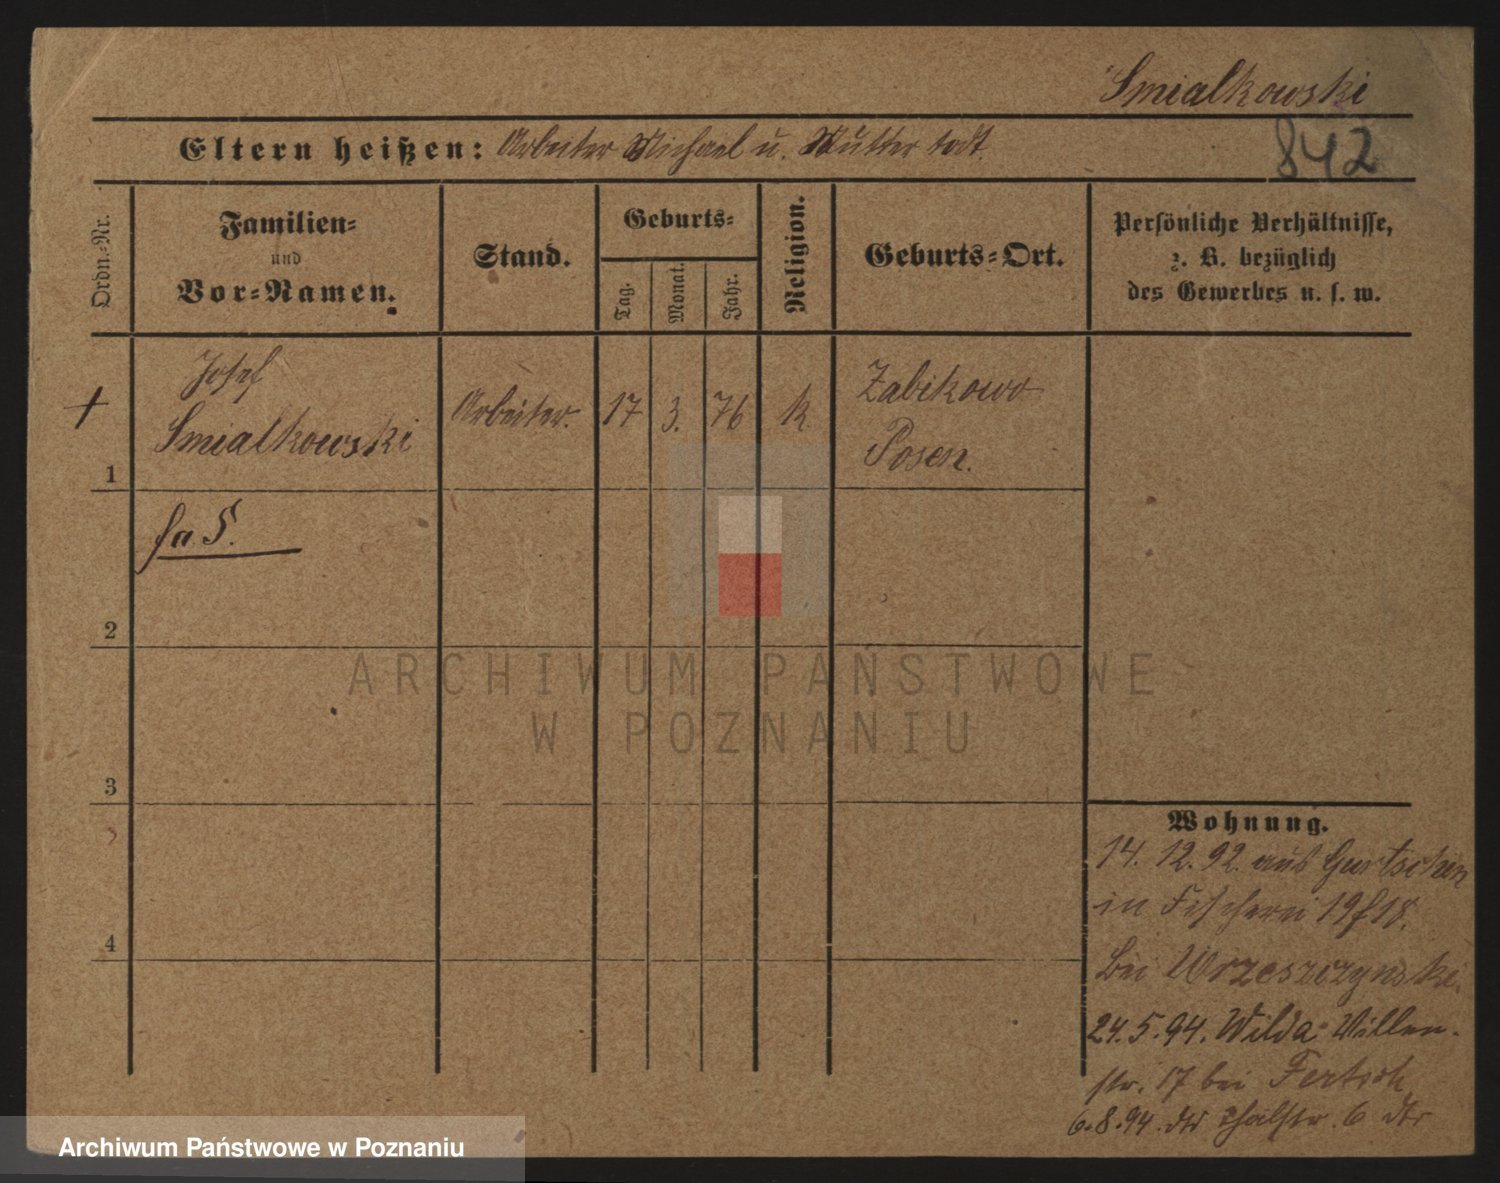 Smialkowski
842
Eltern heißen: Arbeiter Michael u. Mutter todt.
Ordn.-Nr.
Familien-
und
Vor-Namen.
Stand.
Geburts-
Tag.
Monat.
Jahr.
Religion.
Geburts-Ort.
Persönliche Verhältnisse,
z. B. bezüglich
des Gewerbes u. s. w.
1
Josef
Smialkowski
Arbeiter.
17
3.
76
k
Zabikowo
Posen.
2
3
4
Wohnung.
14. 12. 92. aus Gurtschin
in Fischerei 19
bei Wrzeszczynski.
24. 5. 94. Wilda Villen-
str. 17 bei
6. 8. 94. Thalstr. 6
ARCHIWUM PAŃSTWOWE
W POZNANIU
Archiwum Państwowe w Poznaniu